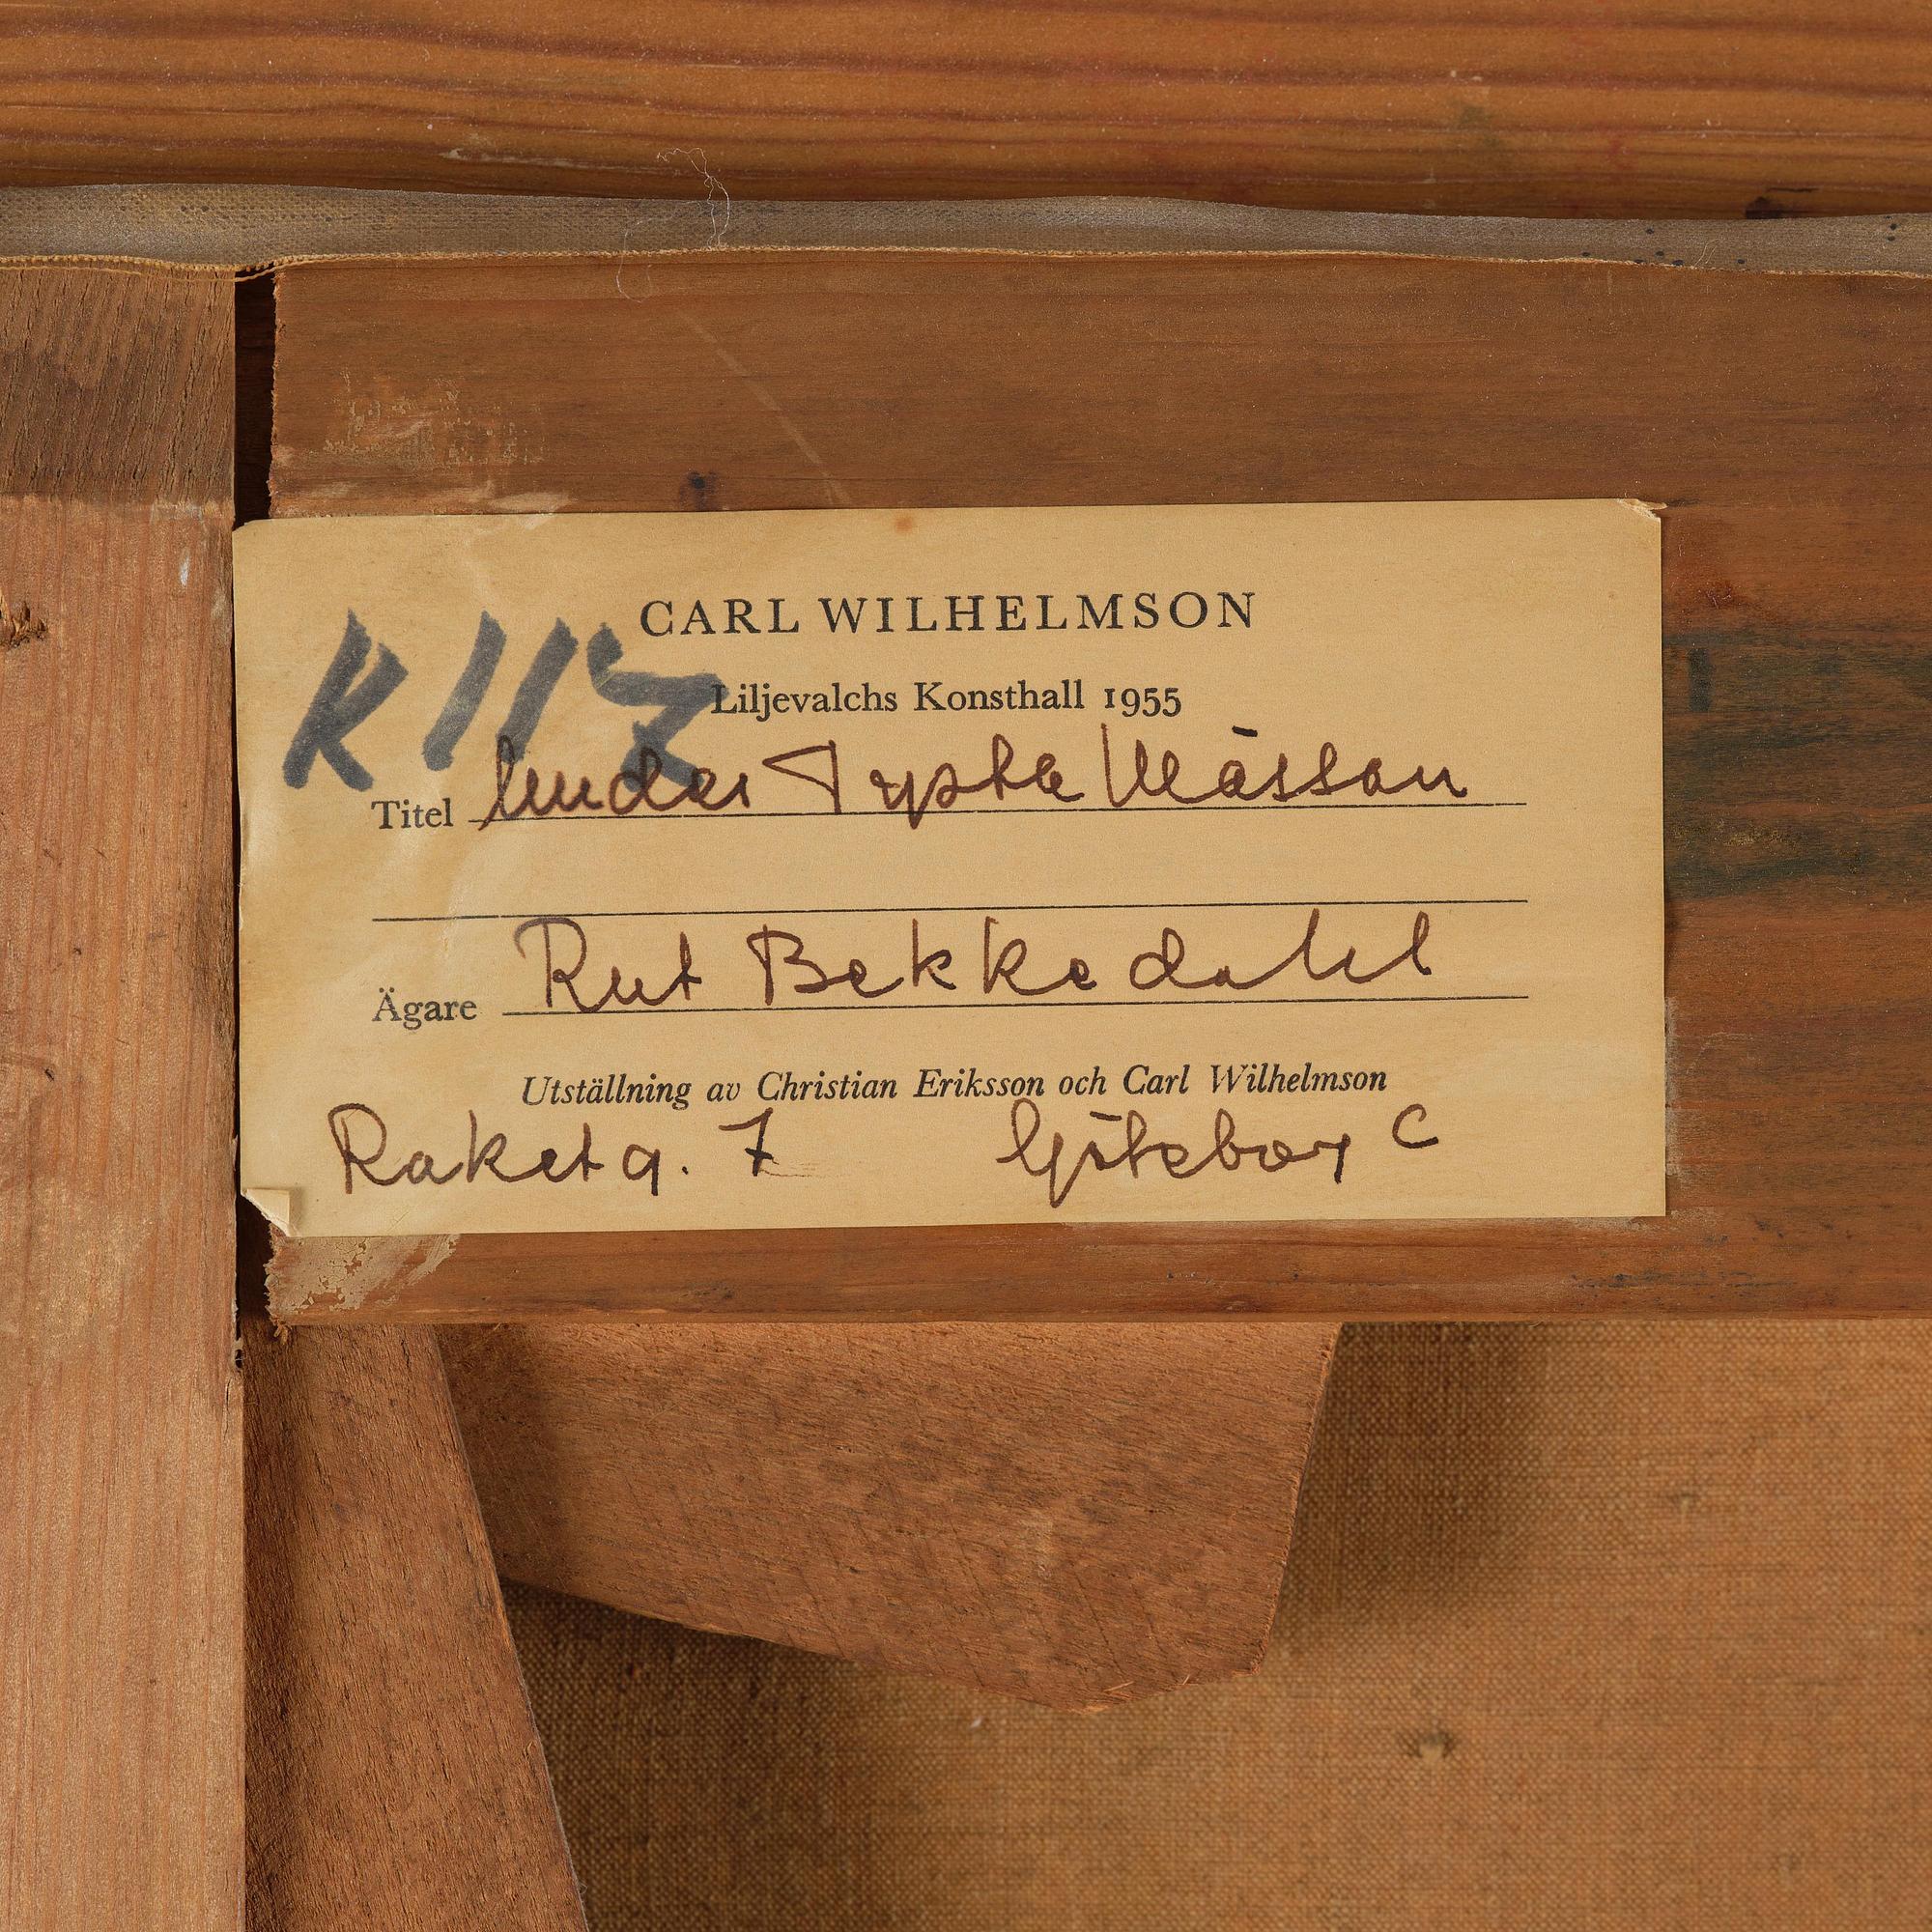 CARL WILHELMSON
K 117
Liljevalchs Konsthall 1955
Titel Under Tysta Mässan
Ägare Rut Bekkedahl
Utställning av Christian Eriksson och Carl Wilhelmson
Raketg. 7 Göteborg C